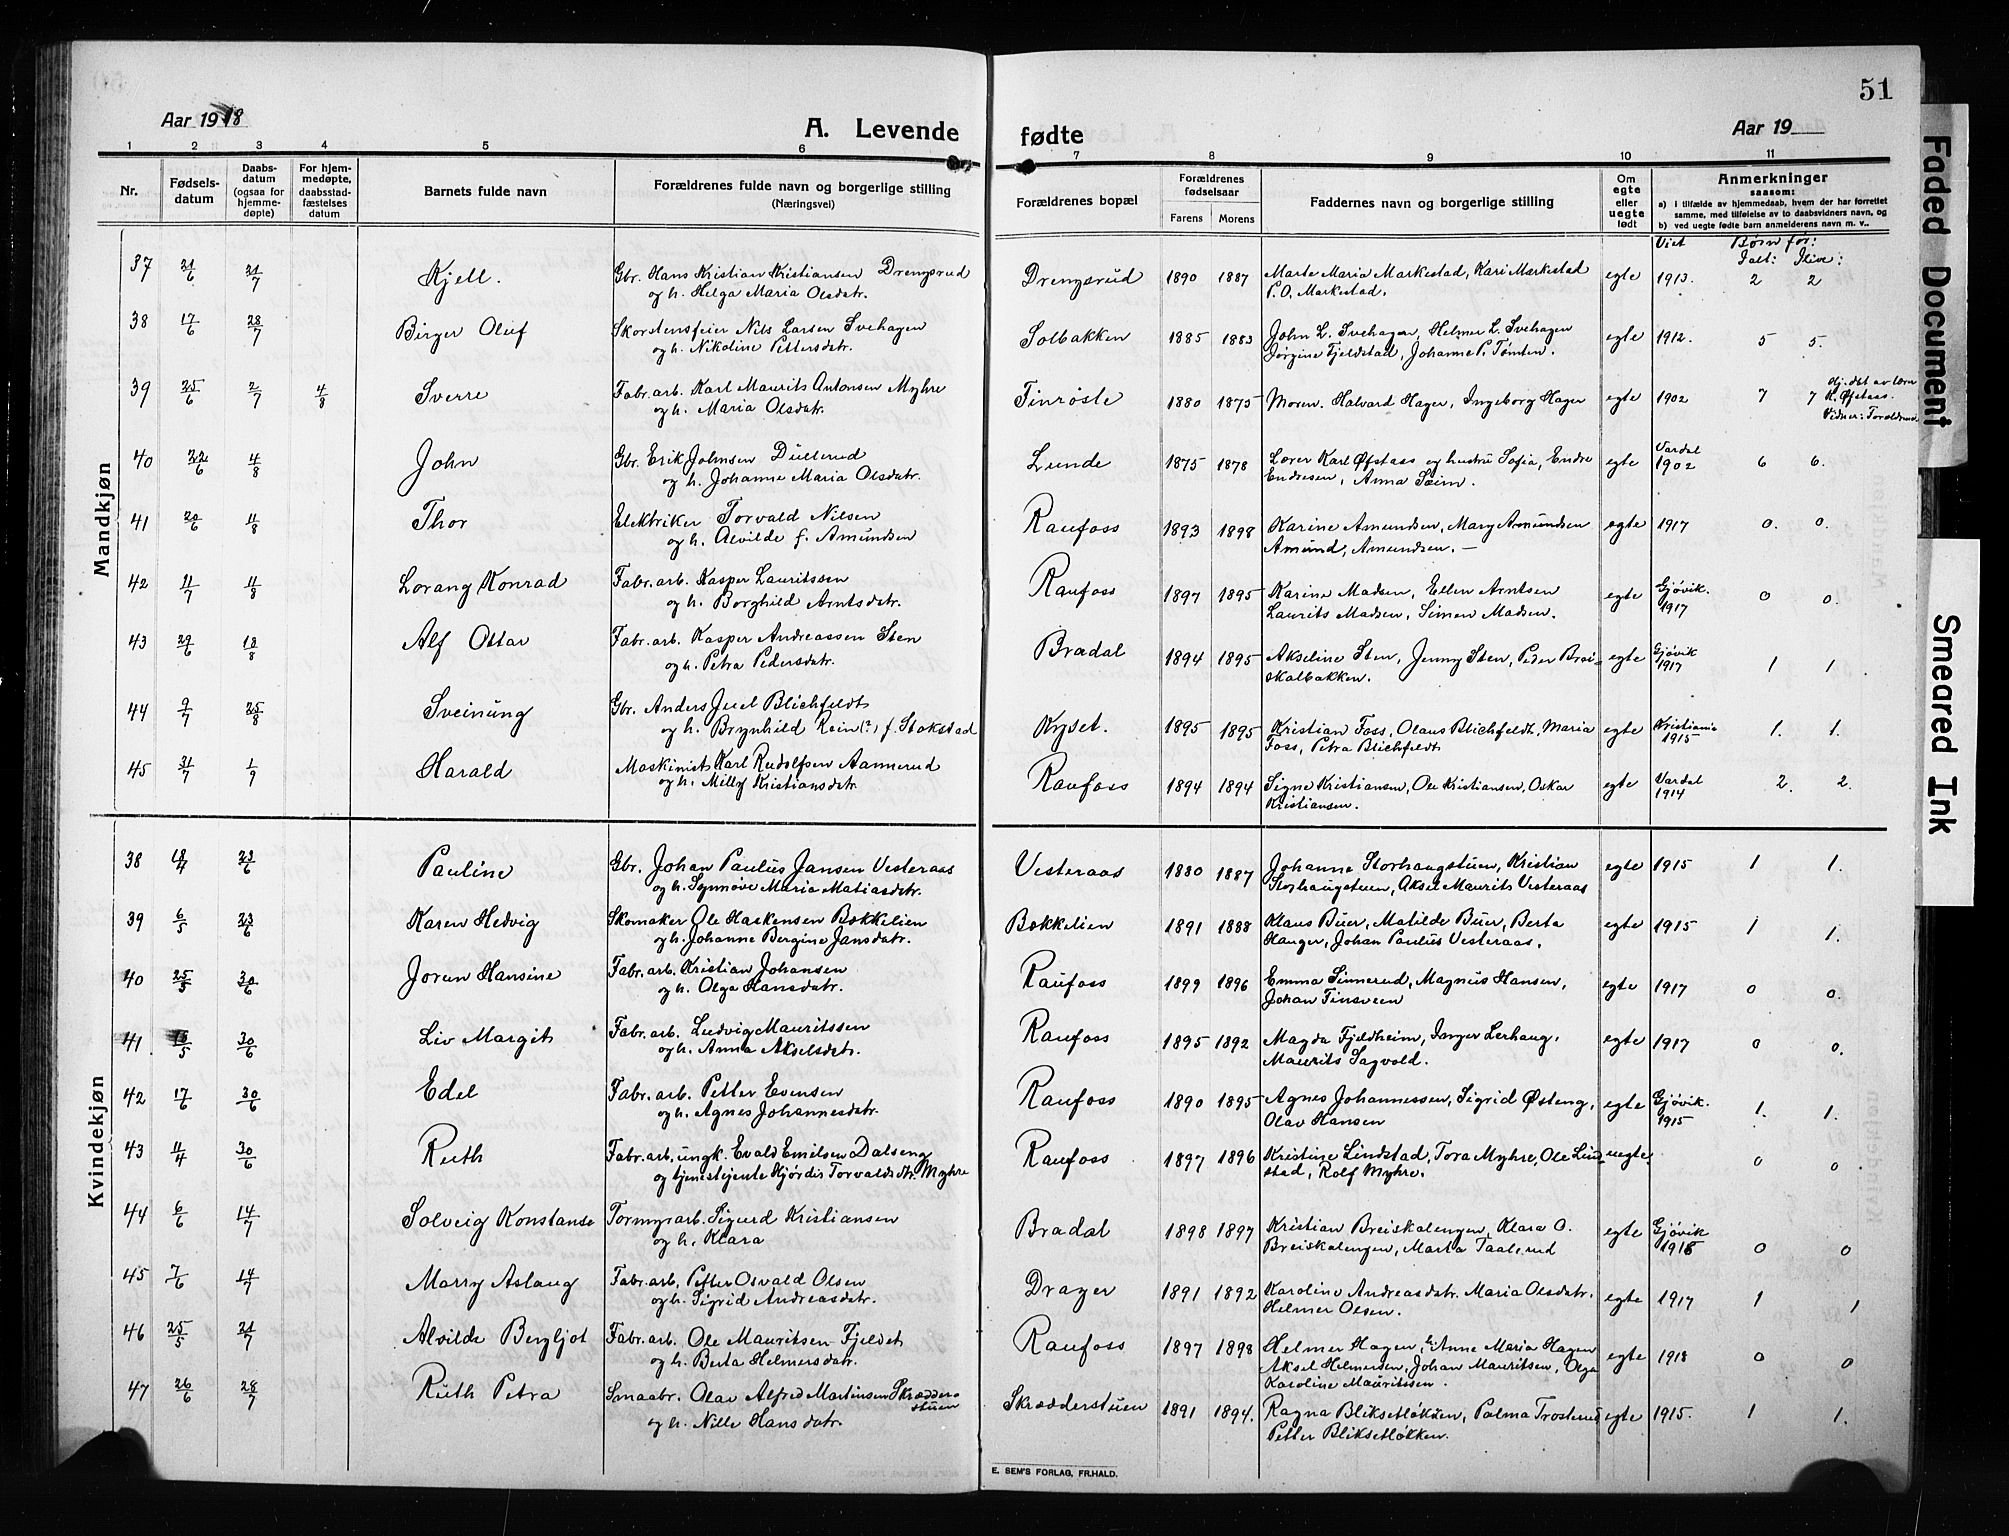 51
Aar 1918
A. Levende
fødte
Aar 19
1 2 3 4 5 6 7 8 9 10 11
Nr.
Fødsels-
datum
Daabs-
datum
(ogsaa for
hjemme-
døpte)
For hjem-
medøpte,
daabsstad-
fæstelses
datum
Barnets fulde navn
Forældrenes fulde navn og borgerlige stilling
(Næringsvei)
Forældrenes bopæl
Forældrenes
fødselsaar
Farens Morens
Faddernes navn og borgerlige stilling
Om
egte
eller
uegte
født
Anmerkninger
saasom:
a) i tilfælde av hjemmedaab, hvem der har forrettet
samme, med tilføielse av to daabsvidners navn, og
b) ved uegte fødte barn anmelderens navn m. v..
Viet Børn før:
Ialt: Ilive:
Mandkjøn
37 21/6 21/7 Kjell. Gbr. Hans Kristian Kristiansen Drengsrud Drengsrud 1890 1887 Marte Maria Markestad, Kari Markestad egte 1913. 2 2
og h. Helga Maria Olsdatr. P.O. Markestad.
38 17/6 28/7 Birger Oluf Skorstensfeier Nils Larsen Svehagen Solbakken 1885 1883 John L. Svehagen, Helmer L. Svehagen egte 1912. 5 5.
og h. Nikoline Pettersdatr. Jørgine Fjeldstad, Johanne P. Tømten.
39 25/6 2/7 4/8 Sverre Fabr. arb. Karl Maurits Antonsen Myhre Finrøste 1880 1875 Moren. Halvard Hager, Ingeborg Hager egte 1902 7 7 Hj. dbt av lærer
og h. Maria Olsdatr. K. Øfstaas.
Vidner: Forældrene
40 22/6 4/8 John Gbr. Erik Johnsen Dullerud Lunde 1875 1878 Lærer Karl Øfstaas og hustru Sofia, Endre egte Vardal 1902 6 6.
og h. Johanne Maria Olsdatr. Endresen, Anna Seim.
41 20/6 11/8 Thor Elektriker Torvald Nilsen Raufoss 1893 1898 Karine Amundsen, Mary Amundsen egte 1917 0. 0.
og h. Alvilde f. Amundsen Amund, Amundsen. —
42 11/7 11/8 Lorang Konrad Fabr. arb. Kasper Lauritssen Raufoss 1897 1895 Karine Madsen, Ellen Arntsen egte Gjøvik. 1917 0 0.
og h. Borghild Arntsdatr. Laurits Madsen, Simen Madsen.
43 29/6 18/8 Alf Ottar Fabr. arb. Kasper Andreassen Sten Bradal 1894 1895 Akseline Sten, Jenny Sten, Peder Brei- egte Gjøvik 1917 1 1.
og h. Petra Pedersdatr. skalbakken.
44 9/7 25/8 Sveinung Gbr. Anders Juel Blichfeldt Kyset. 1895 1895 Kristian Foss, Olaus Blichfeldt, Maria egte Kristiania 1915 1. 1.
og h. Brynhild Rein (?) f. Stokstad Foss, Petra Blichfeldt
45 31/7 1/9 Harald Maskinist Karl Rudolfsen Aannerud Raufoss 1894 1894 Signe Kristiansen, Ole Kristiansen, Oskar egte Vardal 1914 2. 2.
og h. Milly Kristiansdatr. Kristiansen.
Kvindekjøn
38 18/4 23/6 Pauline Gbr. Johan Paulus Jansen Vesteraas Vesteraas 1880 1887 Johanne Storhaugstuen, Kristian egte 1915 1 1.
og h. Synnøve Maria Matiasdatr. Storhaugstuen, Aksel Maurits Vesteraas
39 6/5 23/6 Karen Hedvig Skomaker Ole Haakensen Bækkelien Bækkelien 1891 1888 Klaus Buer, Matilde Buer, Berta egte 1915 1 1.
og h. Johanne Bergine Jansdatr. Hauger, Johan Paulus Vesteraas.
40 25/5 30/6 Jorun Hansine Fabr. arb. Kristian Johansen Raufoss 1899 1896 Emma Sinnerud, Magnus Hansen, egte 1917 0 0.
og h. Olga Hansdatr. Johan Finsveen
41 18/5 30/6 Liv Margit Fabr. arb. Ludvig Mauritssen Raufoss 1895 1892 Magda Fjeldheim, Inger Lerhaug. egte 1917 0 0.
og h. Anna Akselsdatr. Maurits Sagvold.
42 17/6 30/6 Edel Fabr. arb. Petter Evensen Raufoss 1890 1895 Agnes Johannessen, Sigrid Østeng, egte Gjøvik. 1915 1. 1.
og h. Agnes Johannesdatr. Olav Hansen
43 11/4 30/6 Ruth Fabr. arb, ungk. Evald Emilsen Dalseng Raufoss 1897 1896 Kristine Lindstad, Tora Myhre, Ole Lind- uegte. 0 0
og tjenestejente Hjørdis Torvaldsdtr. Myhre stad, Rolf Myhre.
44 6/6 14/7 Solveig Konstanse Tormyrarb. Sigurd Kristiansen Bradal 1898 1897 Kristian Breiskalengen, Klara O. egte Gjøvik 1918 0 0
og h. Klara Breiskalengen, Marta Taalerud
45 7/6 14/7 Marry Aslaug Fabr. arb, Petter Osvald Olsen Drager 1891 1892 Karoline Andreasdatr. Maria Olsdatr. egte 1917 1 1
og h. Sigrid Andreasdatr. Helmer Olsen.
46 25/5 21/7 Alvilde Bergljot Fabr. arb. Ole Mauritsen Fjeldet Raufoss 1897 1898 Helmer Hagen, Anne Maria Hagen egte 1918 0 0
og h. Berta Helmersdatr. Aksel Helmersen, Johan Mauritsen, Olga
Karoline Mauritssen.
47 26/6 28/7 Ruth Petra Smaabr. Olav Alfred Martinsen Skrædder- Skrædderstuen 1891 1894. Ragna Bliksetløkken, Palma Trosterud egte 1915. 1 1.
stuen
og h. Nille Hansdatr. Petter Bliksetløkken.
E. SEM'S FORLAG, FR.HALD.
Faded Document
Smeared Ink